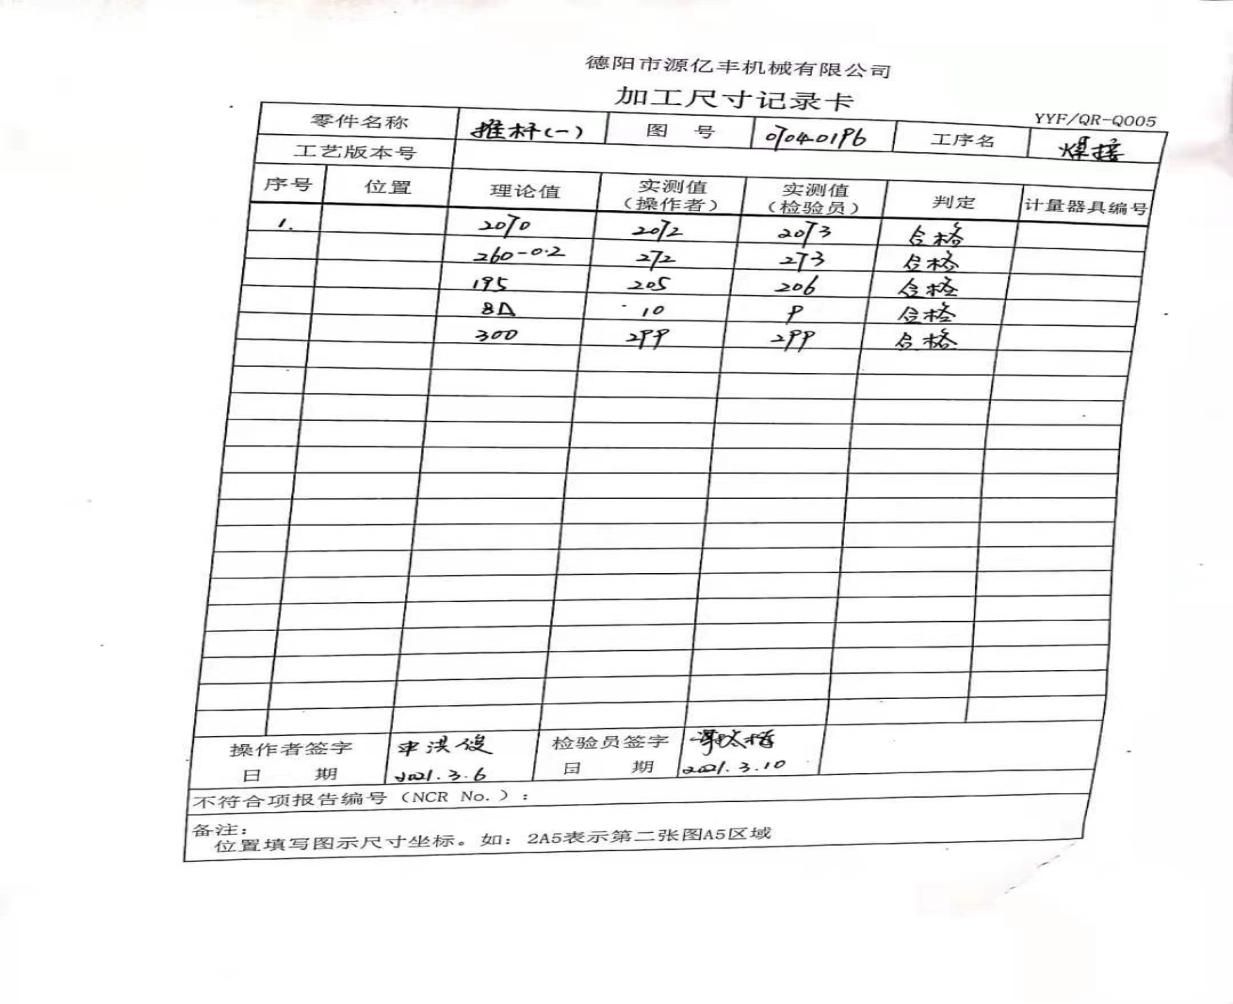 德阳市源亿丰机械有限公司
加工尺寸记录卡
YYF/QR-Q005
零件名称 推杆(一) 图 号 07040196 工序名 焊接
工艺版本号
序号 位置 理论值 实测值（操作者） 实测值（检验员） 判定 计量器具编号
1. 2070 2072 2073 合格
260-0.2 272 273 合格
195 205 206 合格
8⊿ 10 9 合格
300 299 299 合格
操作者签字 申洪俊 检验员签字
日 期 2021.3.6 日 期 2021.3.10
不符合项报告编号（NCR No.）：
备注：
位置填写图示尺寸坐标。如：2A5表示第二张图A5区域